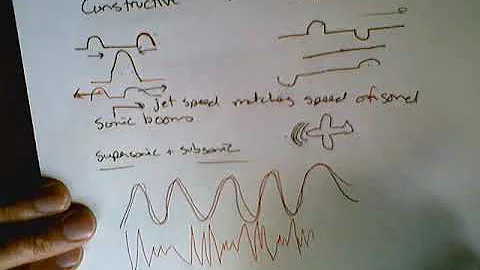 Constructive
jet speed matches speed of sound
sonic booms
supersonic + subsonic